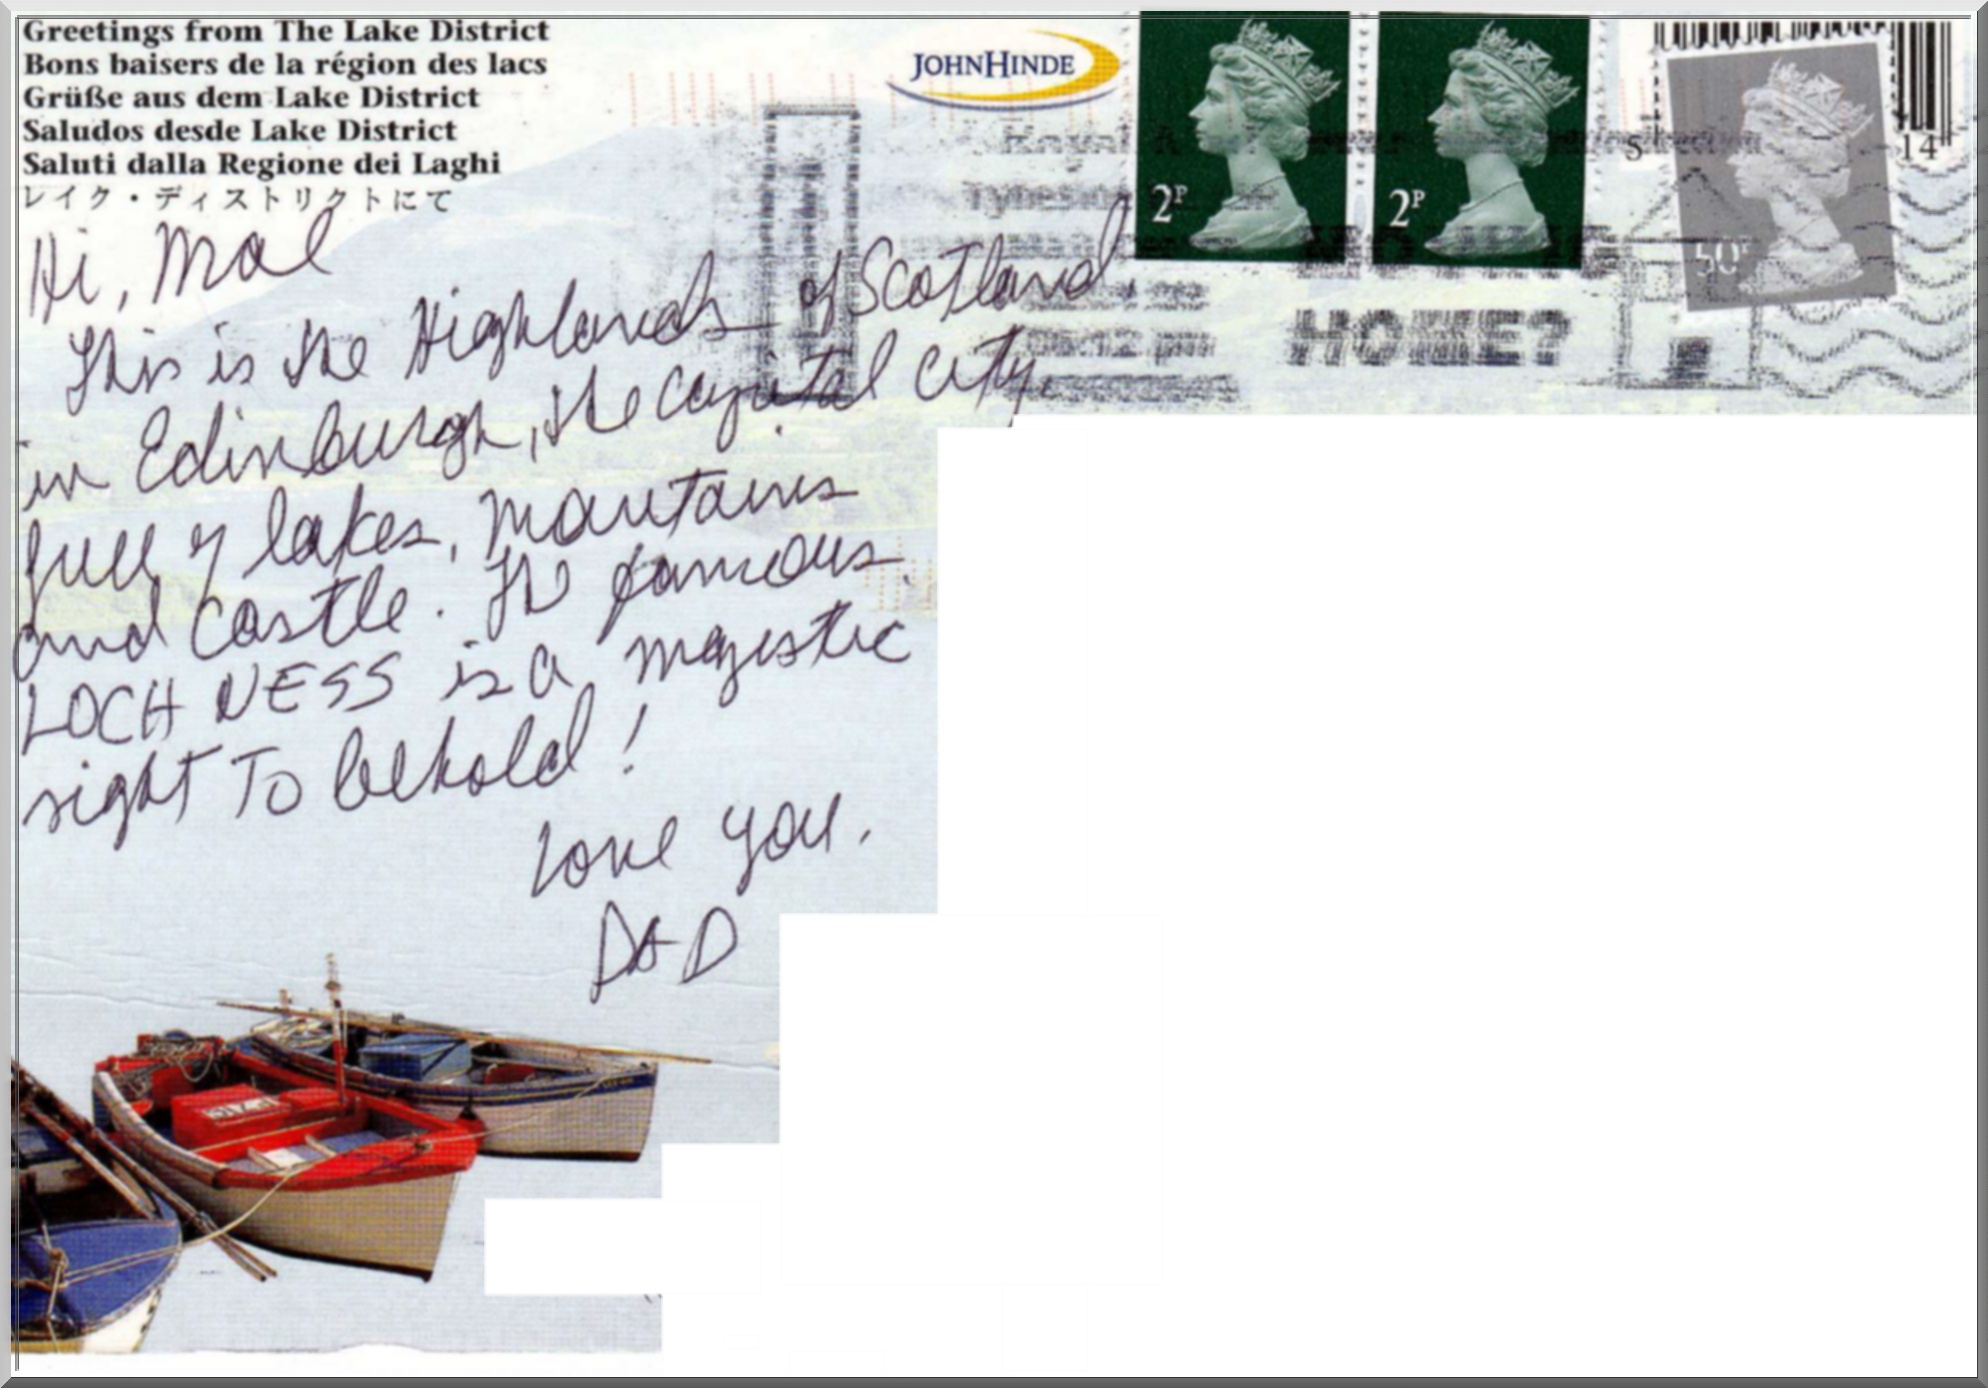 Greetings from The Lake District
Bons baisers de la région des lacs
Grüße aus dem Lake District
Saludos desde Lake District
Saluti dalla Regione dei Laghi
レイク・ディストリクトにて
JOHN HINDE
2P
2P
50P
S
14
HOME?
Hi, Mal
This is the Highlands of Scotland,
in Edinburgh, the capital city,
full of lakes, mountains
and castle. The famous
LOCH NESS is a majestic
sight To behold!
Love you,
DAD